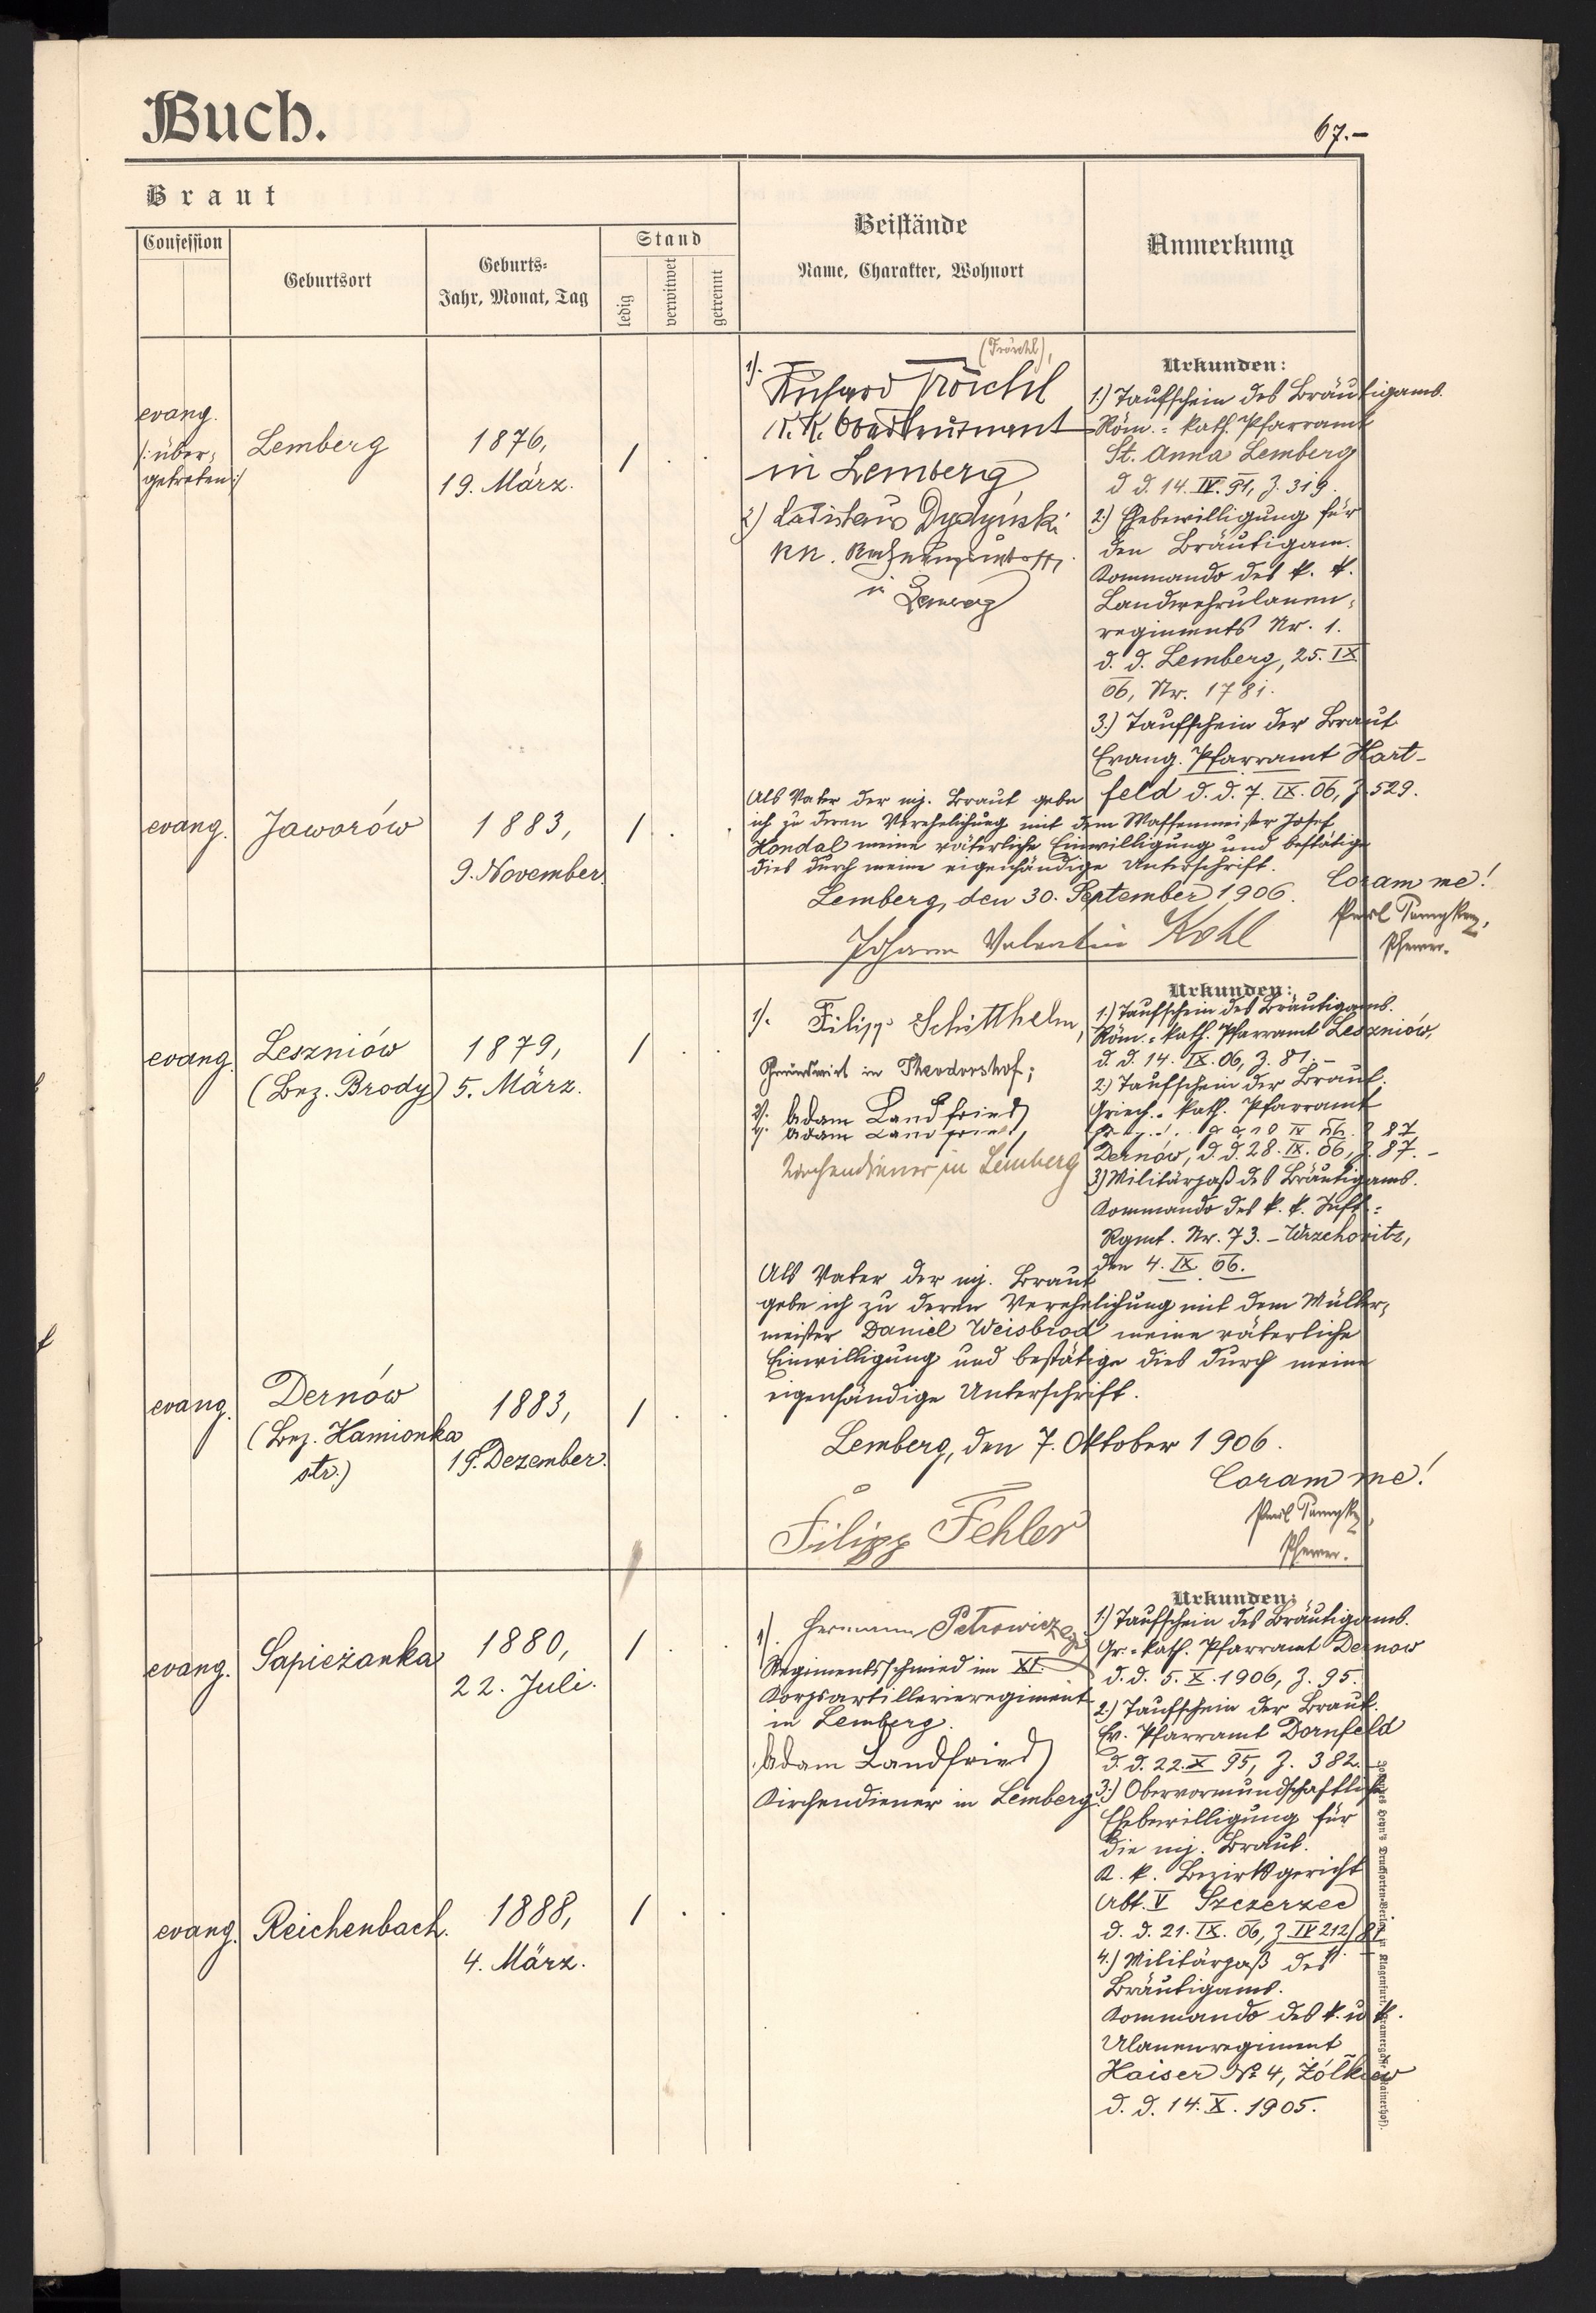 Buch.
67.–
Braut
Confession
Geburtsort
Geburts-
Jahr, Monat, Tag
Stand
ledig
verwitwet
getrennt
Beistände
Name, Charakter, Wohnort
Anmerkung
evang.
/: über-
getreten :/
Lemberg
1876,
19. März.
1
1).
(Tröschl),
Richard Tröschl
K. K. Oberleutnant
in Lemberg
2) Ladislaus Dydyński
in Lemberg
Urkunden:
1.) Taufschein des Bräutigams.
Röm.-kath. Pfarramt
St. Anna Lemberg
d. d. 14. IV. 91, Z. 319.
2.) Ehebewilligung für
den Bräutigam.
Kommando des k. k.
Landwehrulanen-
regiments Nr. 1.
d. d. Lemberg, 25. IX
06, Nr. 1781.
3.) Taufschein der Braut
Evang. Pfarramt Hart-
feld d. d. 7. IX. 06, Z. 529.
evang.
Jaworów
1883,
9. November.
1
Als Vater der mj. Braut gebe
ich zu deren Verehelichung mit dem Waffenmeister Josef
Hondal meine väterliche Einwilligung und bestätige
dies durch meine eigenhändige Unterschrift.
Lemberg, den 30. September 1906.
Coram me!
Johann Valentin Kohl
Pfarrer.
evang.
Leszniów
(Bez. Brody)
1879,
5. März.
1
1). Filipp Schitthelm,
Grundwirt in Theodorshof;
2). Adam Landfried,
Kirchendiener in Lemberg
Urkunden:
1.) Taufschein des Bräutigams.
Röm.-kath. Pfarramt Leszniów,
d. d. 14. IX. 06, Z. 81.–
2.) Taufschein der Braut.
Griech.-kath. Pfarramt
Dernów, d. d. 28. IX. 06, Z. 87.–
3.) Militärpaß des Bräutigams.
Kommando des k. k. Inft.-
Rgmt. Nr. 73. – Wrzchowitz,
den 4. IX. 06.
Als Vater der mj. Braut
gebe ich zu deren Verehelichung mit dem Müller-
meister Daniel Weisbrod meine väterliche
Einwilligung und bestätige dies durch meine
eigenhändige Unterschrift.
Lemberg, den 7. Oktober 1906.
Coram me!
Filipp Fehler
Pfarrer.
evang.
Dernów
(Bez. Kamionka
str.)
1883,
19. Dezember.
1
evang.
Sapieżanka
1880,
22. Juli.
1
1). Hermann Petrowicz
Regimentsschmied im XI.
Korpsartillerieregiment
in Lemberg.
Adam Landfried
Kirchendiener in Lemberg.
Urkunden:
1.) Taufschein des Bräutigams.
Gr.-kath. Pfarramt Dernow
d. d. 5. X. 1906, Z. 95.
2.) Taufschein der Braut.
Ev. Pfarramt Dornfeld
d. d. 22. X 95, Z. 382.
3.) Obervormundschaftliche
Ehebewilligung für
die mj. Braut.
K. k. Bezirksgericht
Abt. V Szczerzec
d. d. 21. IX. 06, Z. IV 212/81
4.) Militärpaß des
Bräutigams.
Kommando des k. u. k.
Ulanenregiment
Kaiser No 4, Żółkiew
d. d. 14. X. 1905.
evang.
Reichenbach.
1888,
4. März.
1